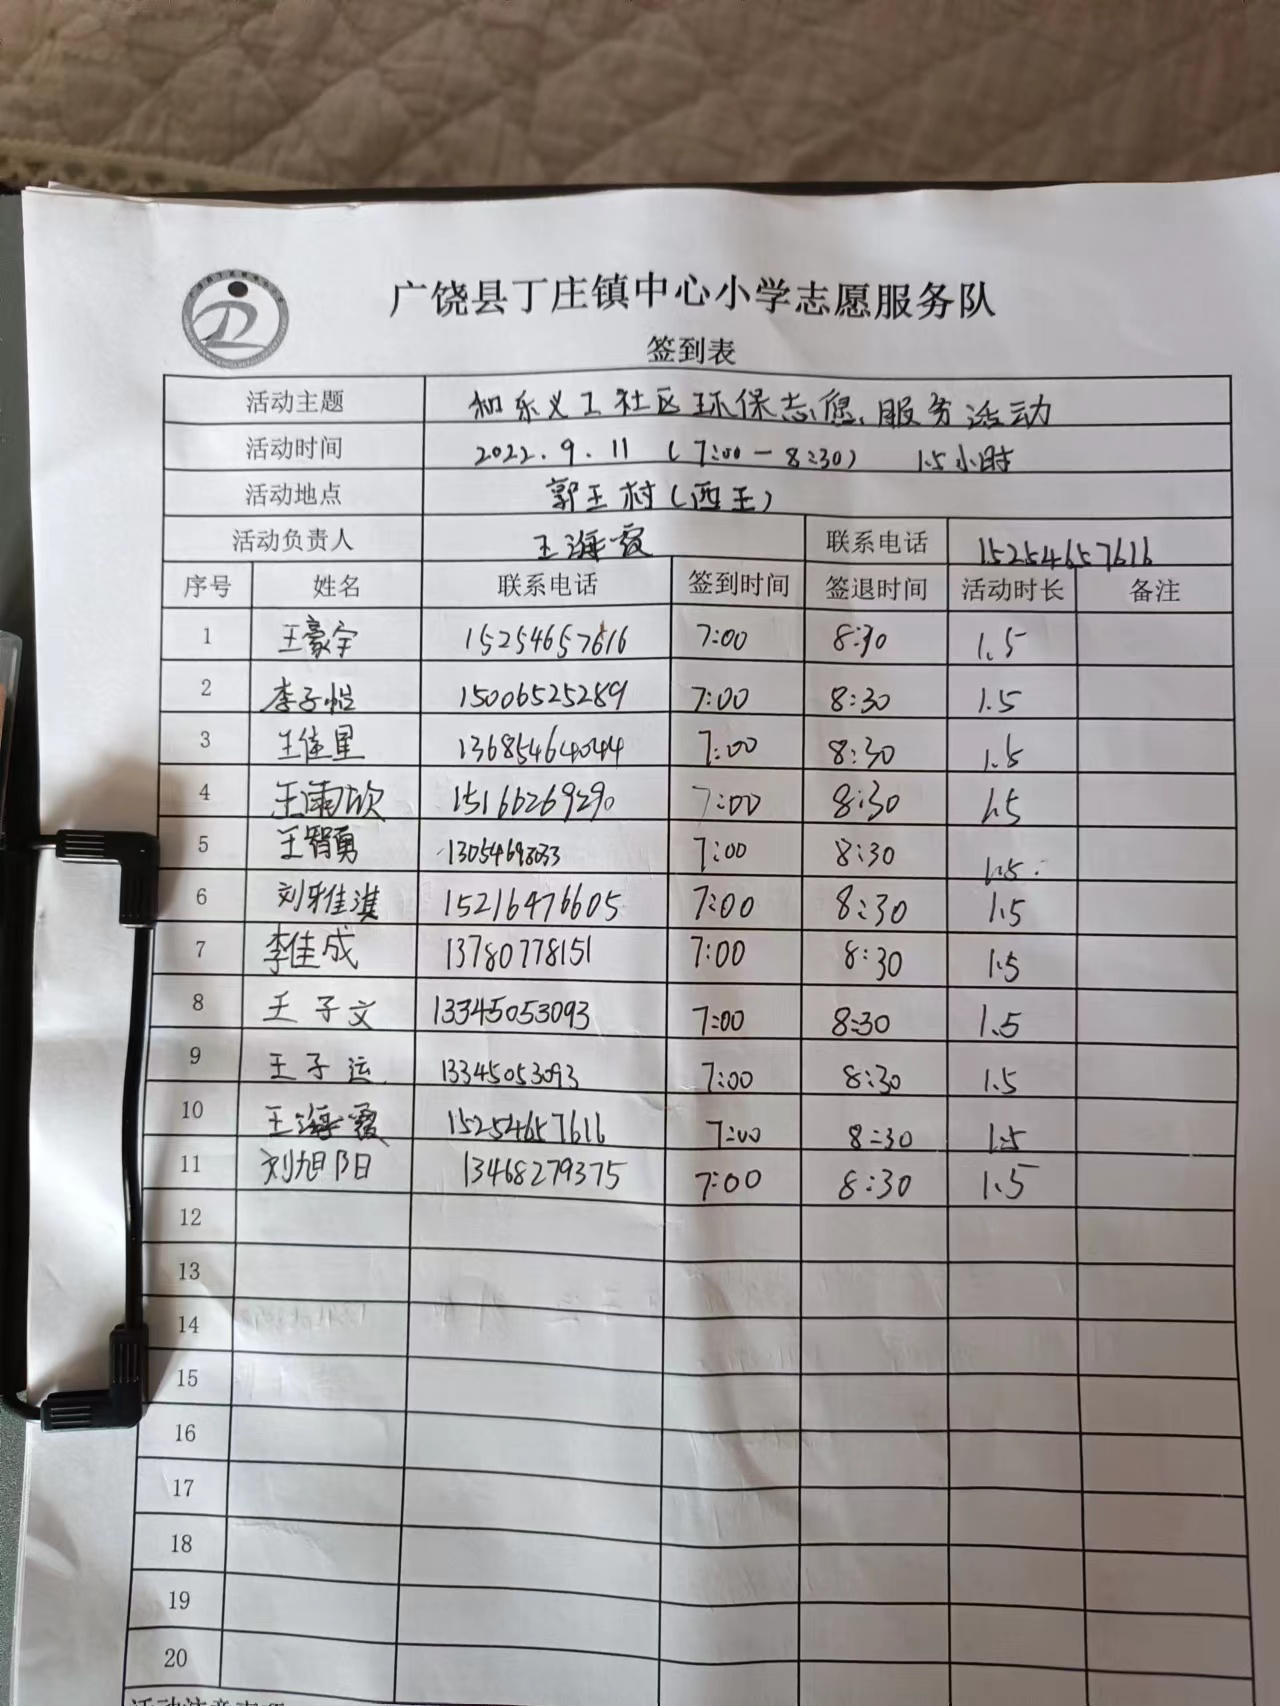 广饶县丁庄镇中心小学志愿服务队
签到表
活动主题 和乐义工社区环保志愿服务活动
活动时间 2022.9.11 (7:00-8:30) 1.5小时
活动地点 郭王村(西王)
活动负责人 王海霞 联系电话 15254657616
序号 姓名 联系电话 签到时间 签退时间 活动时长 备注
1 王豪宇 15254657616 7:00 8:30 1.5
2 李子恺 15006525289 7:00 8:30 1.5
3 王佳星 13685464044 7:00 8:30 1.5
4 王雨欣 15166269290 7:00 8:30 1.5
5 王智勇 13054698033 7:00 8:30 1.5
6 刘雅淇 15216476605 7:00 8:30 1.5
7 李佳成 13780778151 7:00 8:30 1.5
8 王子文 13345053093 7:00 8:30 1.5
9 王子运 13345053093 7:00 8:30 1.5
10 王海霞 15254657616 7:00 8:30 1.5
11 刘旭阳 13468279375 7:00 8:30 1.5
12
13
14
15
16
17
18
19
20